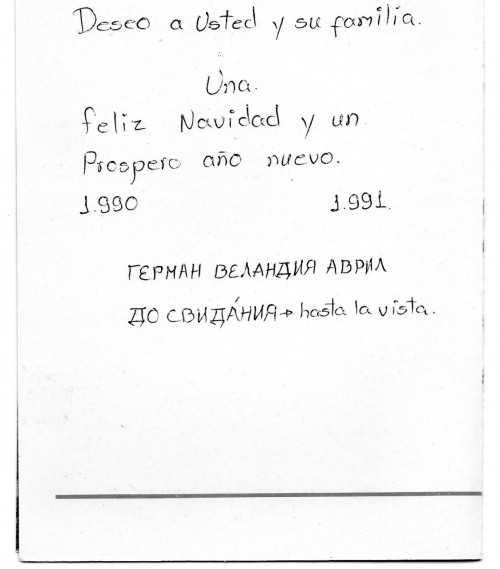 Deseo a Usted y su familia.
Una.
feliz Navidad y un
Prospero año nuevo.
1.990 1.991.
ГЕРМАН ВЕЛАНДИЯ АВРИЛ
ДО СВИДА́НИЯ→ hasta la vista.